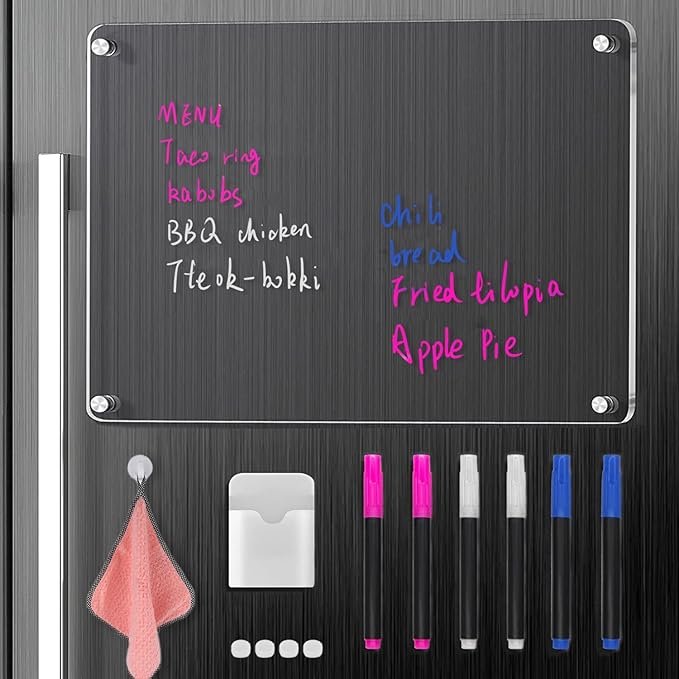 MENU
Taco ring
kabobs
BBQ chicken
Tteok-bokki
chili
bread
Fried tilopia
Apple Pie